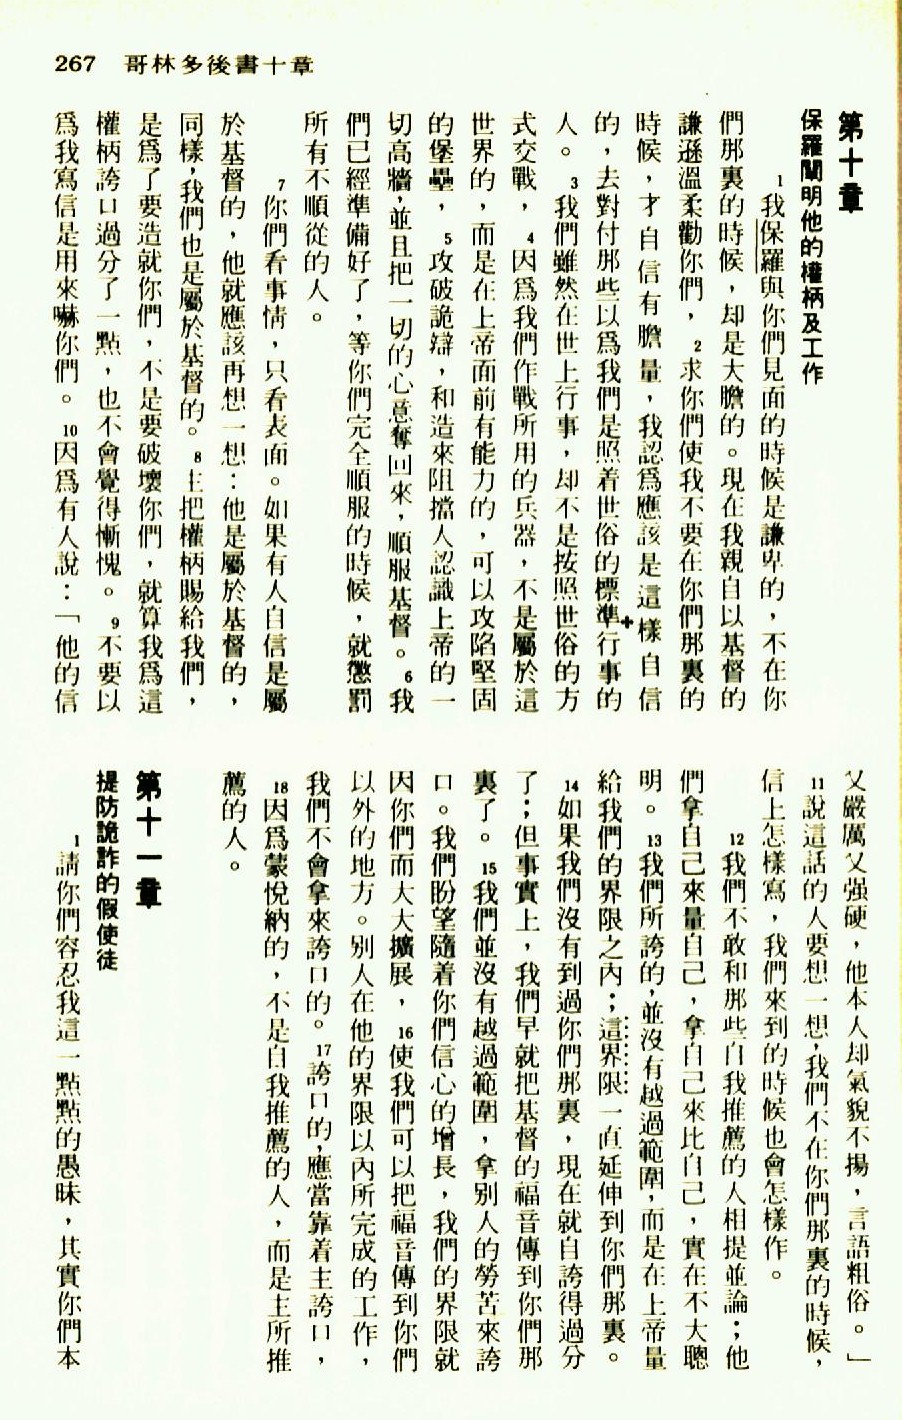 267 哥林多後書十章
第十章
保羅闡明他的權柄及工作
1我保羅與你們見面的時候是謙卑的，不在你
們那裏的時候，却是大膽的。現在我親自以基督的
謙遜溫柔勸你們，2求你們使我不要在你們那裏的
時候，才自信有膽量，我認爲應該是這樣自信
的，去對付那些以爲我們是照着世俗的標準行事的
人。3我們雖然在世上行事，却不是按照世俗的方
式交戰，4因爲我們作戰所用的兵器，不是屬於這
世界的，而是在上帝面前有能力的，可以攻陷堅固
的堡壘，5攻破詭辯，和造來阻擋人認識上帝的一
切高牆，並且把一切的心意奪回來，順服基督。6我
們已經準備好了，等你們完全順服的時候，就懲罰
所有不順從的人。
7你們看事情，只看表面。如果有人自信是屬
於基督的，他就應該再想一想：他是屬於基督的，
同樣，我們也是屬於基督的。8主把權柄賜給我們，
是爲了要造就你們，不是要破壞你們，就算我爲這
權柄誇口過分了一點，也不會覺得慚愧。9不要以
爲我寫信是用來嚇你們。10因爲有人說：「他的信
又嚴厲又强硬，他本人却氣貌不揚，言語粗俗。」
11說這話的人要想一想，我們不在你們那裏的時候，
信上怎樣寫，我們來到的時候也會怎樣作。
12我們不敢和那些自我推薦的人相提並論；他
們拿自己來量自己，拿自己來比自己，實在不大聰
明。13我們所誇的，並沒有越過範圍，而是在上帝量
給我們的界限之內；這界限一直延伸到你們那裏。
14如果我們沒有到過你們那裏，現在就自誇得過分
了；但事實上，我們早就把基督的福音傳到你們那
裏了。15我們並沒有越過範圍，拿別人的勞苦來誇
口。我們盼望隨着你們信心的增長，我們的界限就
因你們而大大擴展，16使我們可以把福音傳到你們
以外的地方。別人在他的界限以內所完成的工作，
我們不會拿來誇口的。17誇口的，應當靠着主誇口，
18因爲蒙悅納的，不是自我推薦的人，而是主所推
薦的人。
第十一章
提防詭詐的假使徒
1請你們容忍我這一點點的愚昧，其實你們本